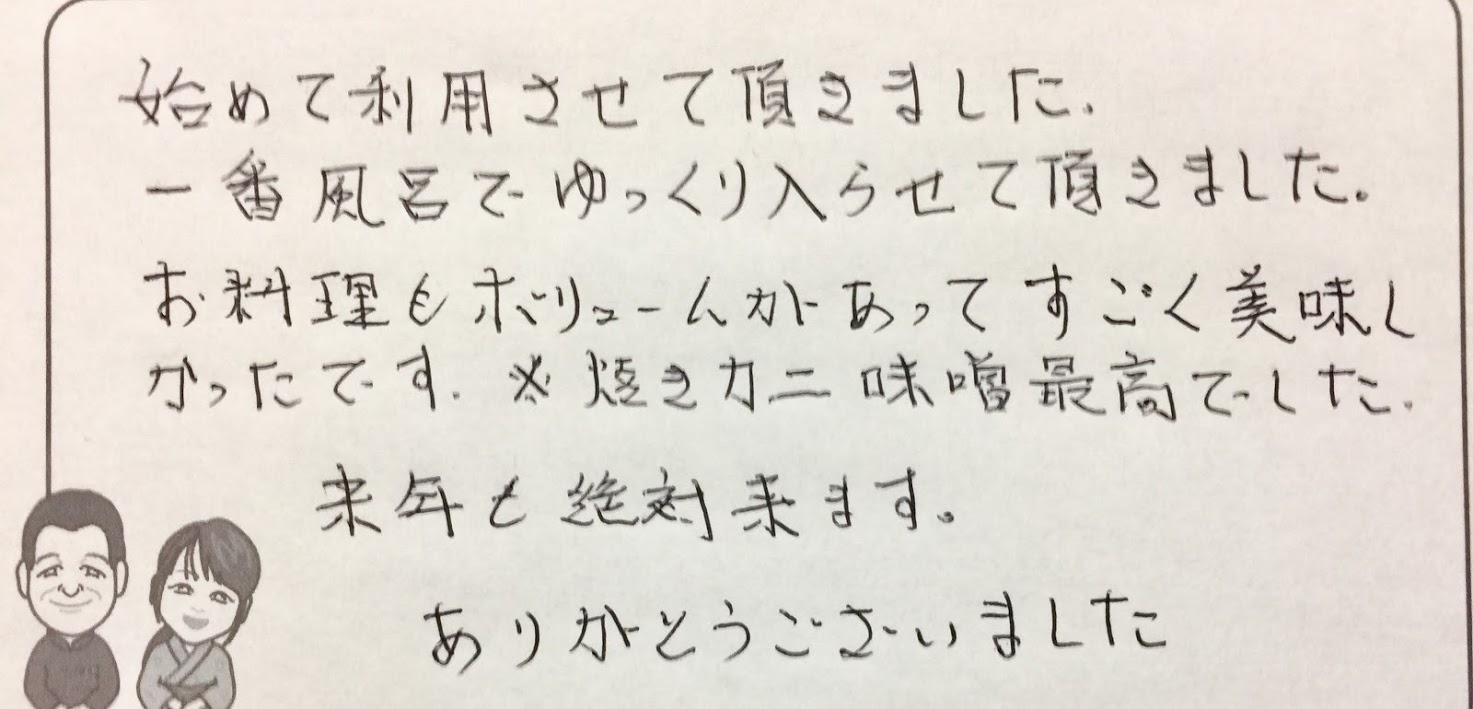 始めて利用させて頂きました.
一番風呂でゆっくり入らせて頂きました。
お料理もボリュームがあってすごく美味し
かったです. ※焼きカニ味噌最高でした.
来年も絶対来ます。
ありがとうございました